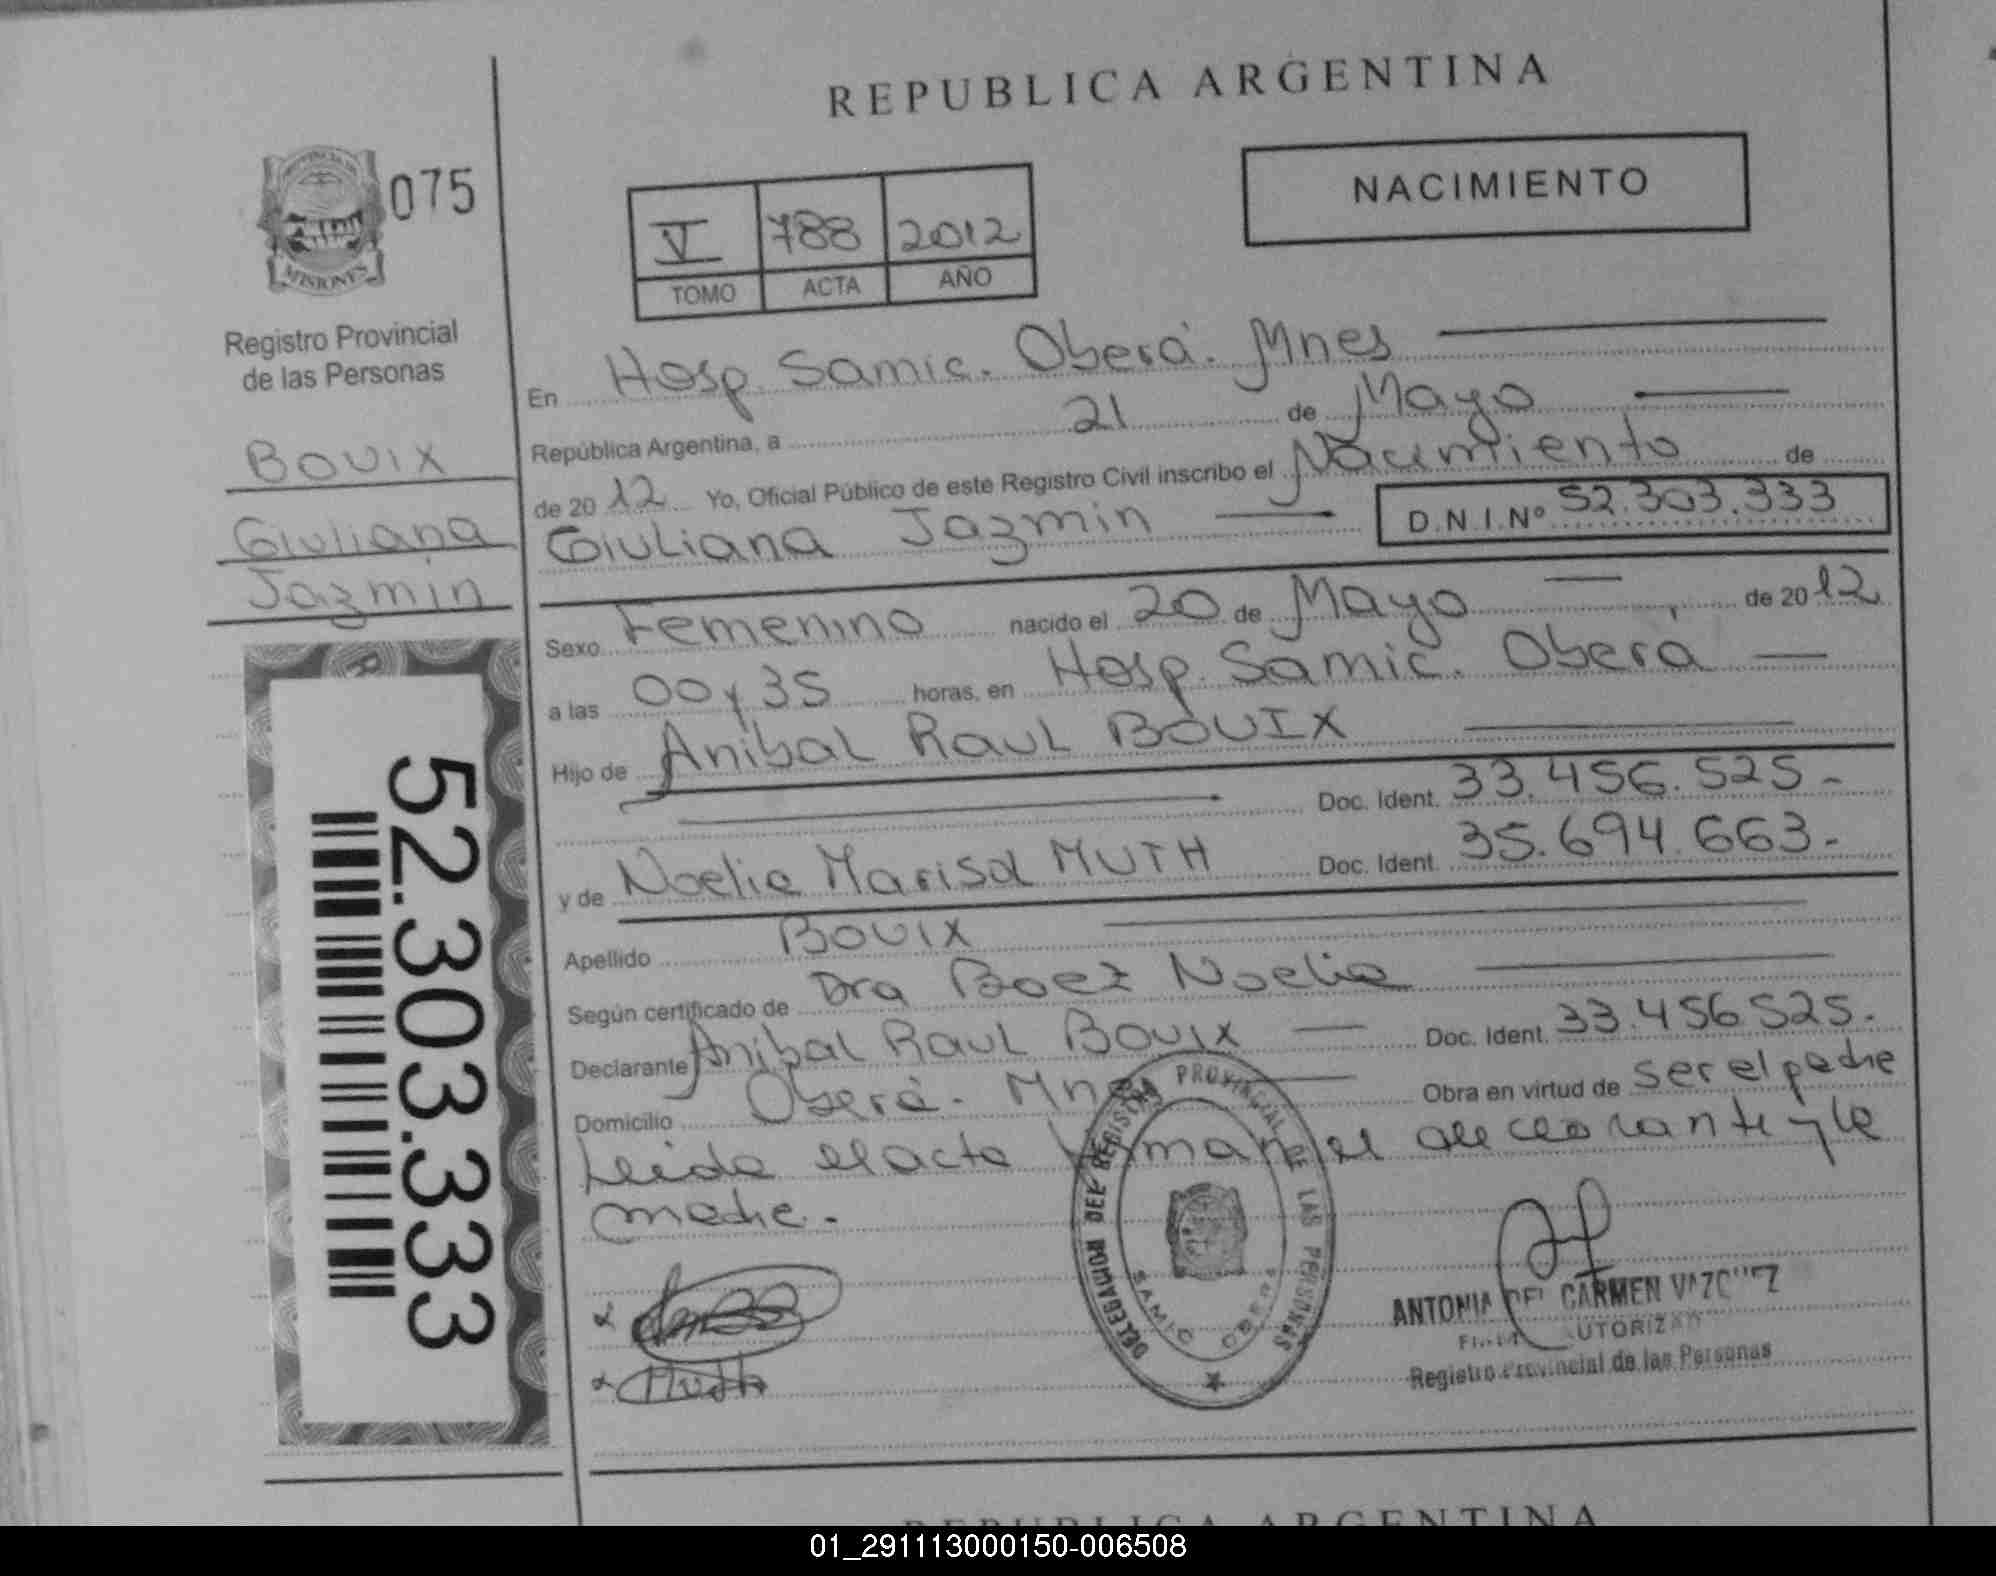 REPUBLICA ARGENTINA
PROVINCIA DE
MISIONES
075
NACIMIENTO
V 788 2012
TOMO ACTA AÑO
Registro Provincial
de las Personas
BOVIX
Giuliana
Jazmin
52.303.333
En Hosp. Samic. Oberá. Mnes
República Argentina, a 21 de Mayo
de 2012 Yo, Oficial Público de este Registro Civil inscribo el Nacimiento de
Giuliana Jazmin D.N.I.Nº 52.303.333
Sexo Femenino nacido el 20 de Mayo de 2012
a las 00 y 35 horas, en Hosp. Samic. Oberá
Hijo de Anibal Raul BOVIX
Doc. Ident. 33.456.525-
y de Noelia Marisol MUTH Doc. Ident. 35.694.663-
Apellido BOVIX
Según certificado de Dra Baez Noelia
Declarante Anibal Raul Bovix Doc. Ident. 33.456525.
Domicilio Oberá. Mnes Obra en virtud de ser el padre
Leida el acta firman el declarante y la
madre.
DELEGACION DEL REGISTRO PROVINCIAL DE LAS PERSONAS
SAMIC OBERA
ANTONIA DEL CARMEN VAZQUEZ
AUTORIZADA
Registro Provincial de las Personas
x
x Muth
REPUBLICA ARGENTINA
01_291113000150-006508